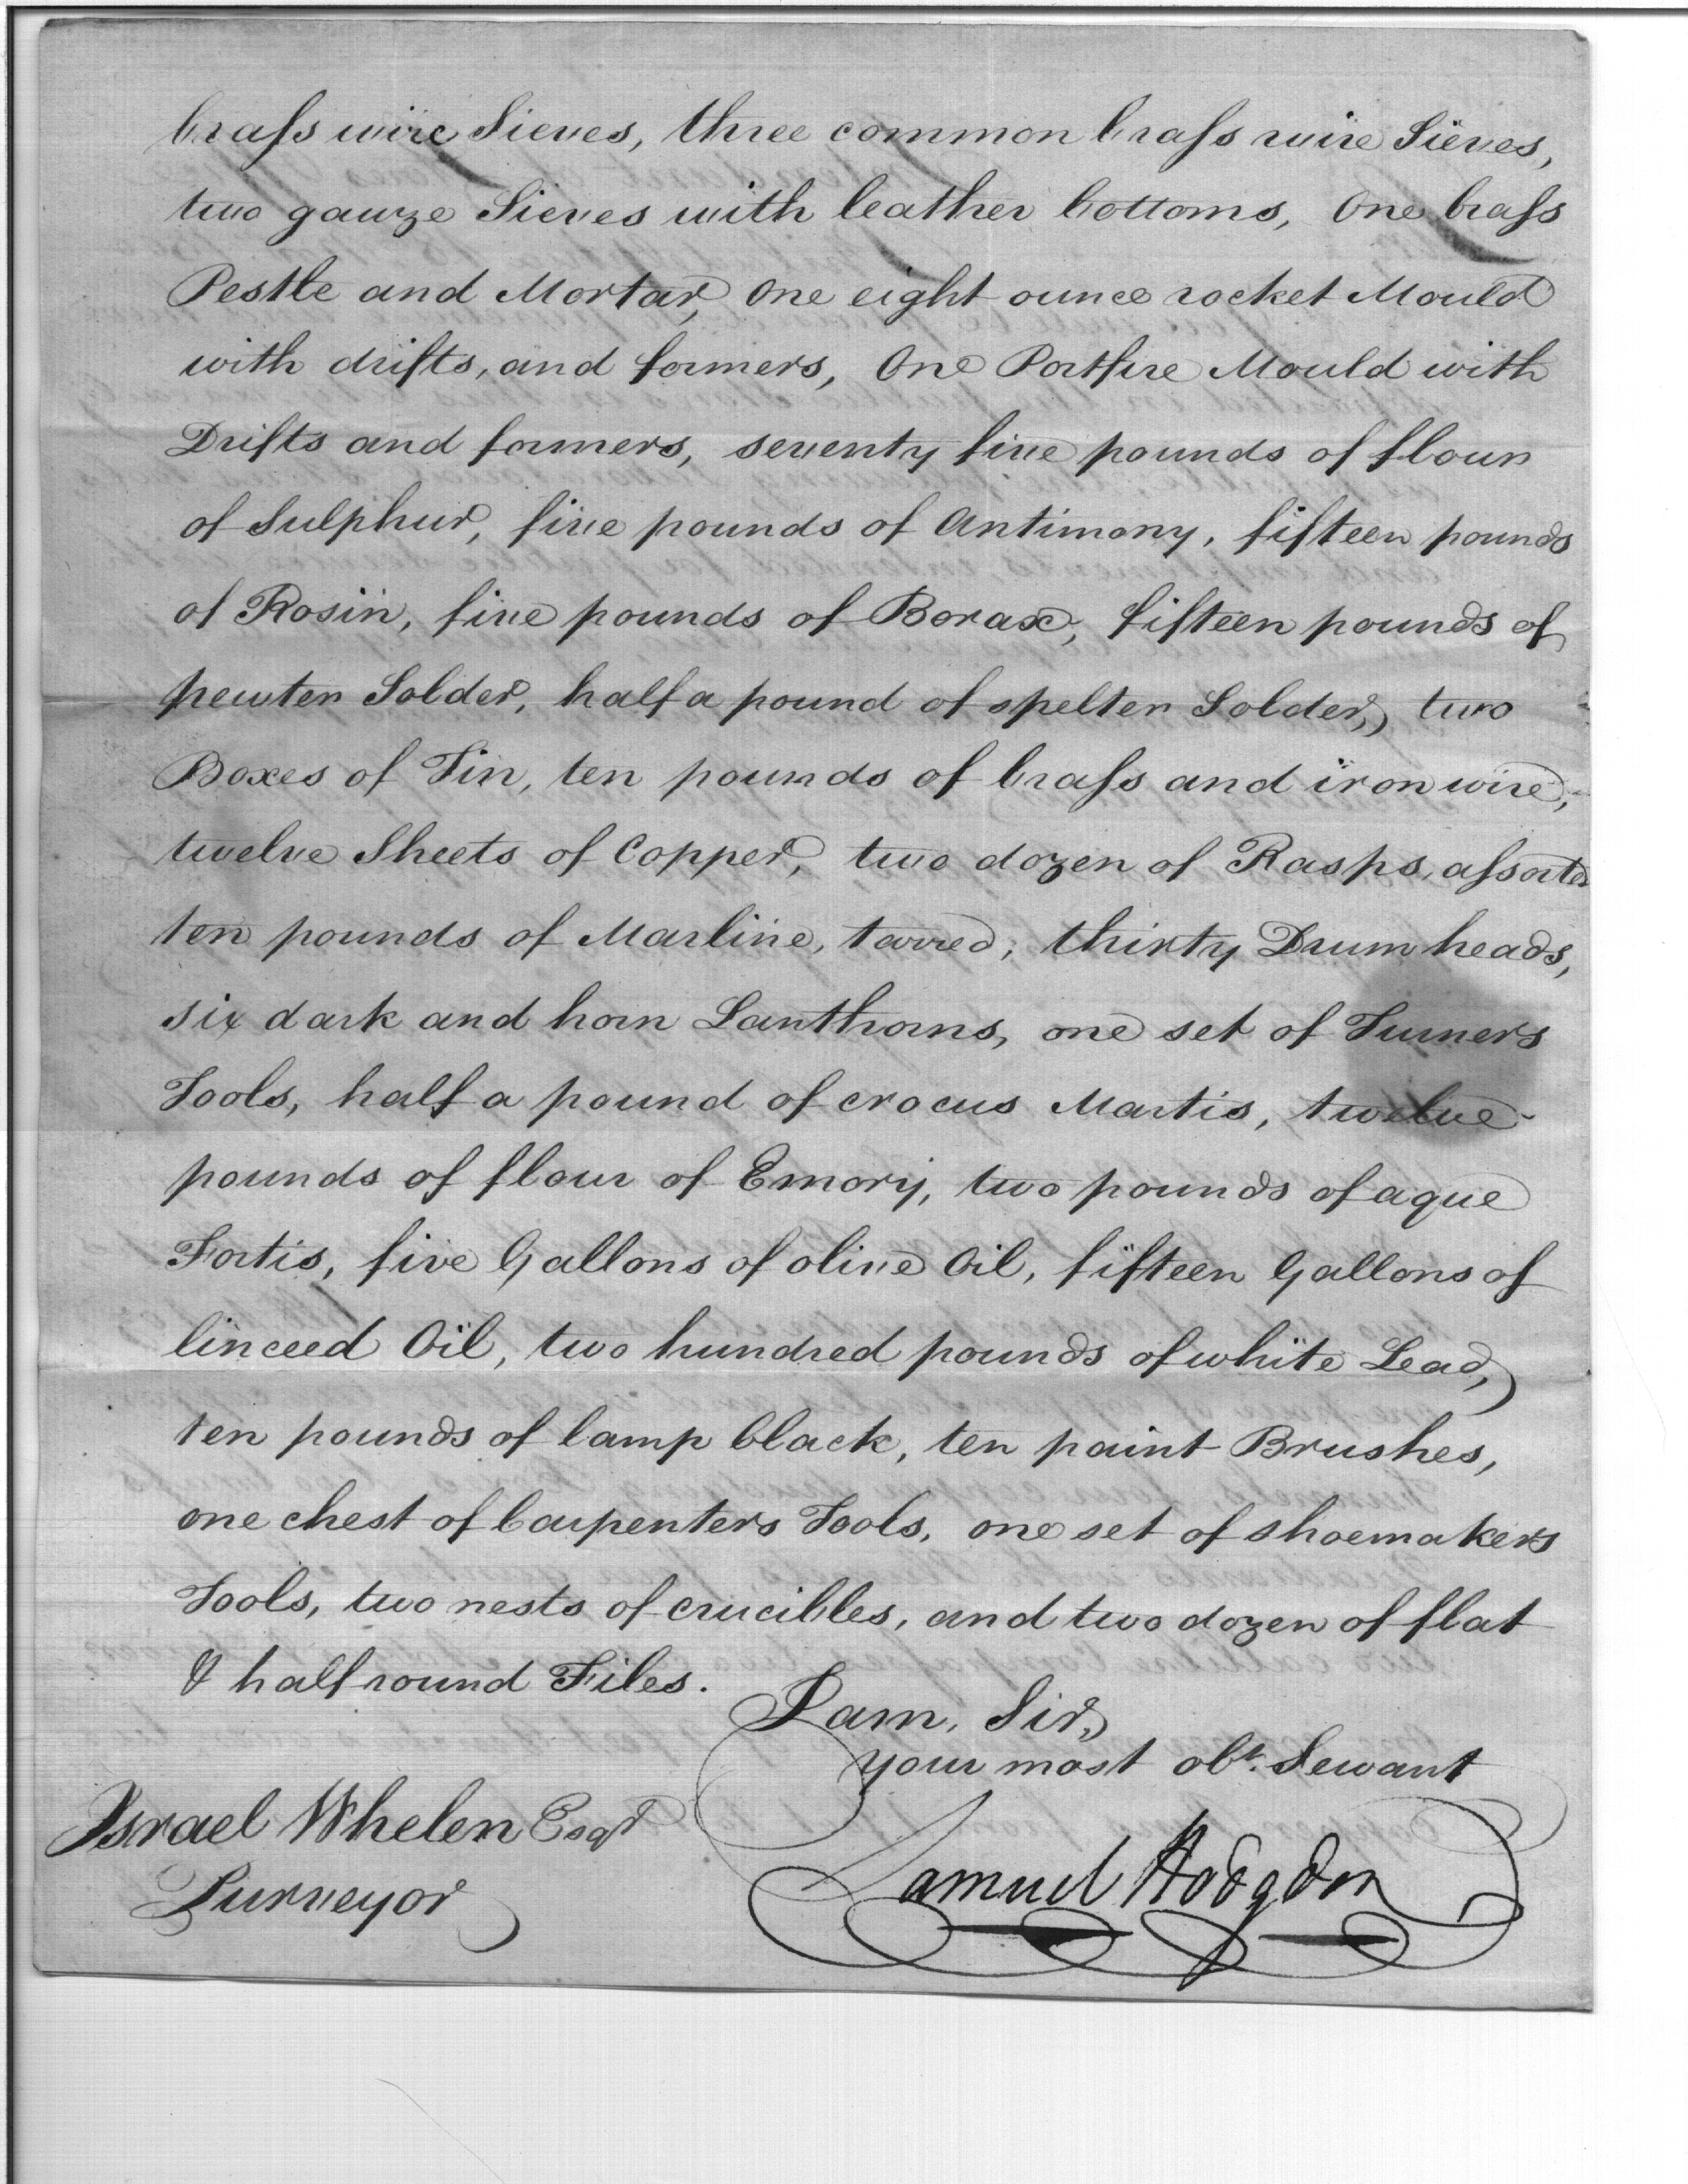 brass wire Sieves, three common brass wire Sieves,
two gauze Sieves with leather bottoms, One brass
Pestle and Mortar, One eight ounce rocket Mould
with drifts, and formers, One Portfire Mould with
Drifts and formers, seventy five pounds of flour
of Sulphur, five pounds of Antimony, fifteen pounds
of Rosin, five pounds of Borax, fifteen pounds of
pewter Solder, half a pound of spelter Solder, two
Boxes of Tin, ten pounds of brass and iron wire,
twelve Sheets of Copper, two dozen of Rasps, assorted
ten pounds of Marline, tarred, thirty Drum heads,
six dark and horn Lanthorns, one set of Turners
Tools, half a pound of crocus Martis, twelve
pounds of flour of Emory, two pounds of aque
Fortis, five Gallons of olive Oil, fifteen Gallons of
linceed Oil, two hundred pounds of white Lead,
ten pounds of lamp black, ten paint Brushes,
one chest of Carpenters Tools, one set of shoemakers
Tools, two nests of crucibles, and two dozen of flat
& half round Files.
I am, Sir,
your most obt. Servant
Samuel Hodgdon
Israel Whelen Esqr
Purveyor